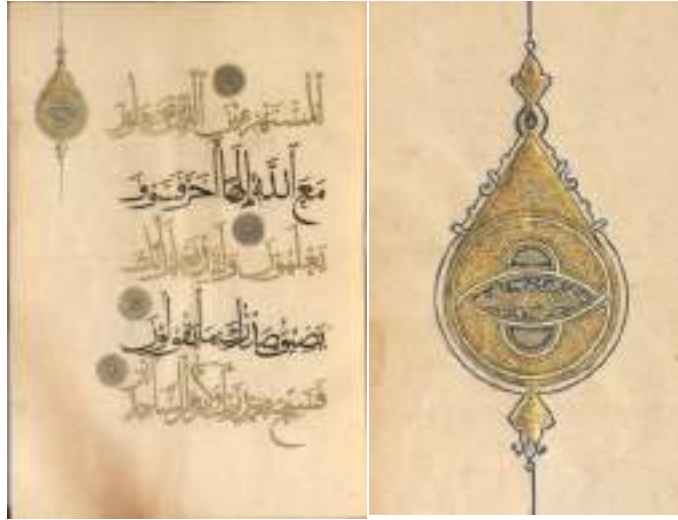 المستهزئين الذين يجعلون
مع الله إلها آخر فسوف
يعلمون ولقد نعلم أنك
يضيق صدرك بما يقولون
فسبح بحمد ربك وكن من الساجدين